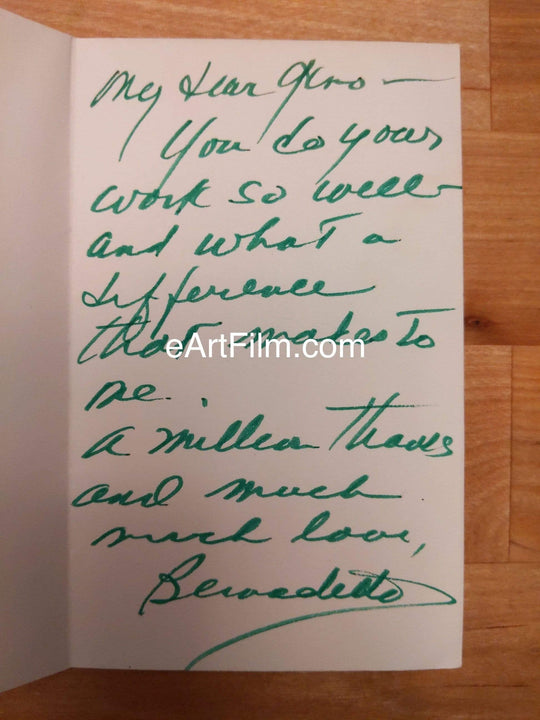 My dear Gino —
You do your
work so well—
and what a
difference
that makes to
me.
A million thanks
and much
much love,
Bernadette
eArtFilm.com